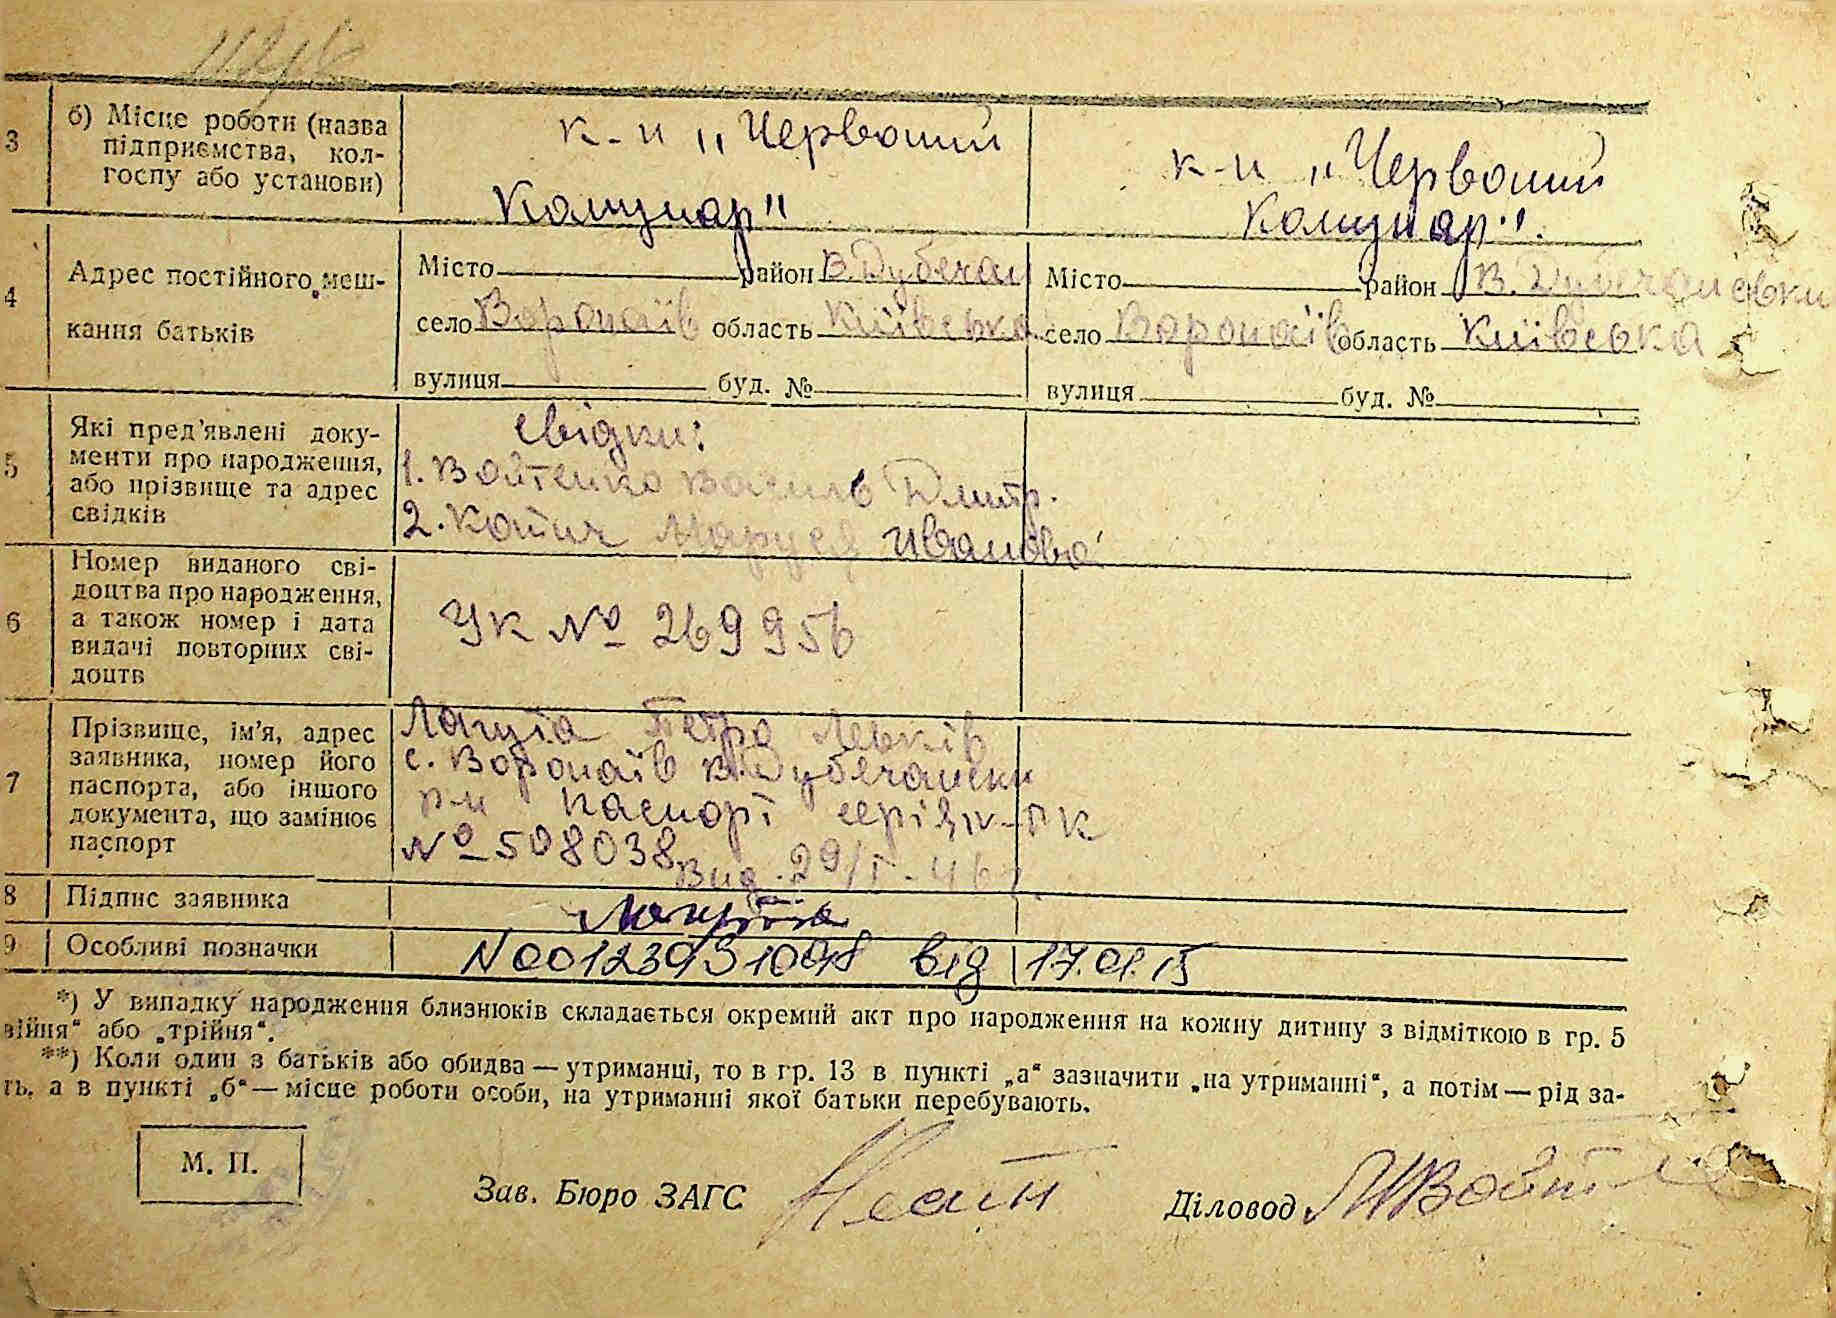 3
б) Місце роботи (назва
підприємства, кол-
госпу або установи)
к-п „Червоний
Комунар"
к-п „Червоний
Комунар".
4
Адрес постійного меш-
кання батьків
Місто район В. Дубечан
село Воропаїв область Київська
вулиця буд. №
Місто район В. Дубечанськи
село Воропаїв область Київська
вулиця буд. №
5
Які пред'явлені доку-
менти про народження,
або прізвище та адрес
свідків
свідки:
1. Войтенко Василь Дмитр.
2. Маруся Иванова
6
Номер виданого сві-
доцтва про народження,
а також номер і дата
видачі повторних сві-
доцтв
УК № 269956
7
Прізвище, ім'я, адрес
заявника, номер його
паспорта, або іншого
документа, що замінює
паспорт
Лагута Петро Левків
с. Воропаїв В. Дубечански
р-н паспорт серія
№ 508038 Вид. 29/I-46
8
Підпис заявника
Лагута
9
Особливі позначки
N 00123931098 від 17.01.15
*) У випадку народження близнюків складається окремий акт про народження на кожну дитину з відміткою в гр. 5
війня" або „трійня".
**) Коли один з батьків або обидва — утриманці, то в гр. 13 в пункті „а" зазначити „на утриманні", а потім — рід за-
ть, а в пункті „б" — місце роботи особи, на утриманні якої батьки перебувають.
М. П.
Зав. Бюро ЗАГС
Діловод